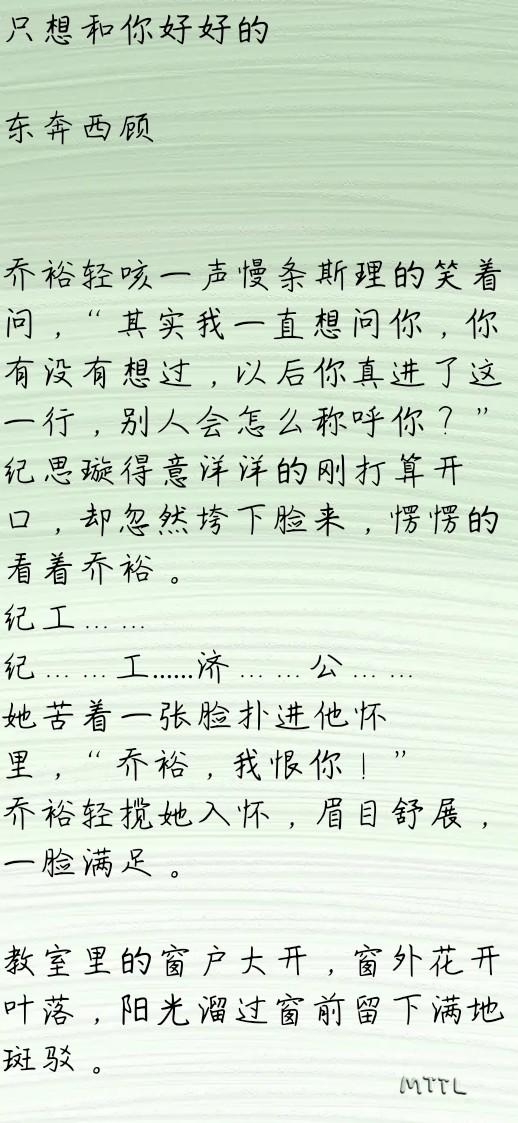 只想和你好好的
东奔西顾
乔裕轻咳一声慢条斯理的笑着
问，“其实我一直想问你，你
有没有想过，以后你真进了这
一行，别人会怎么称呼你？”
纪思璇得意洋洋的刚打算开
口，却忽然垮下脸来，愣愣的
看着乔裕。
纪工……
纪……工......济……公……
她苦着一张脸扑进他怀
里，“乔裕，我恨你！”
乔裕轻揽她入怀，眉目舒展，
一脸满足。
教室里的窗户大开，窗外花开
叶落，阳光溜过窗前留下满地
斑驳。
MTTL